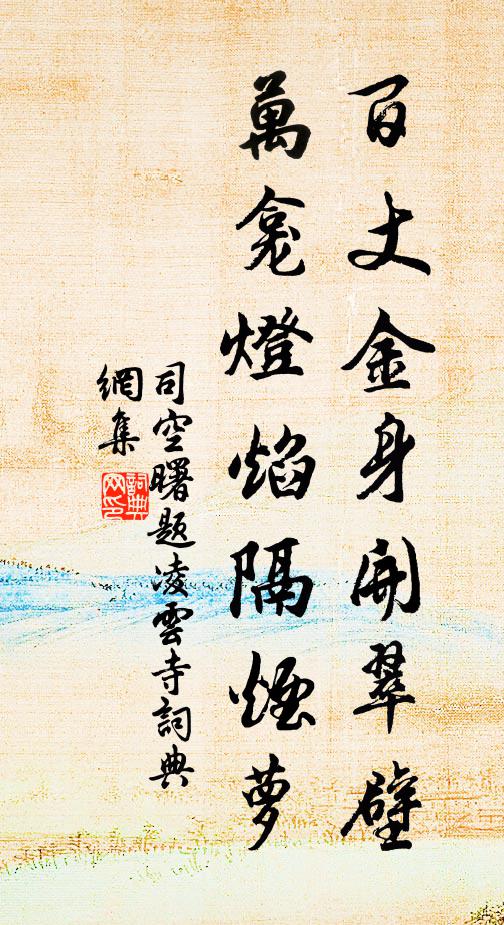 百丈金身開翠壁
萬龕燈焰隔煙夢
司空曙題凌雲寺詞典
網集
詞典
网印